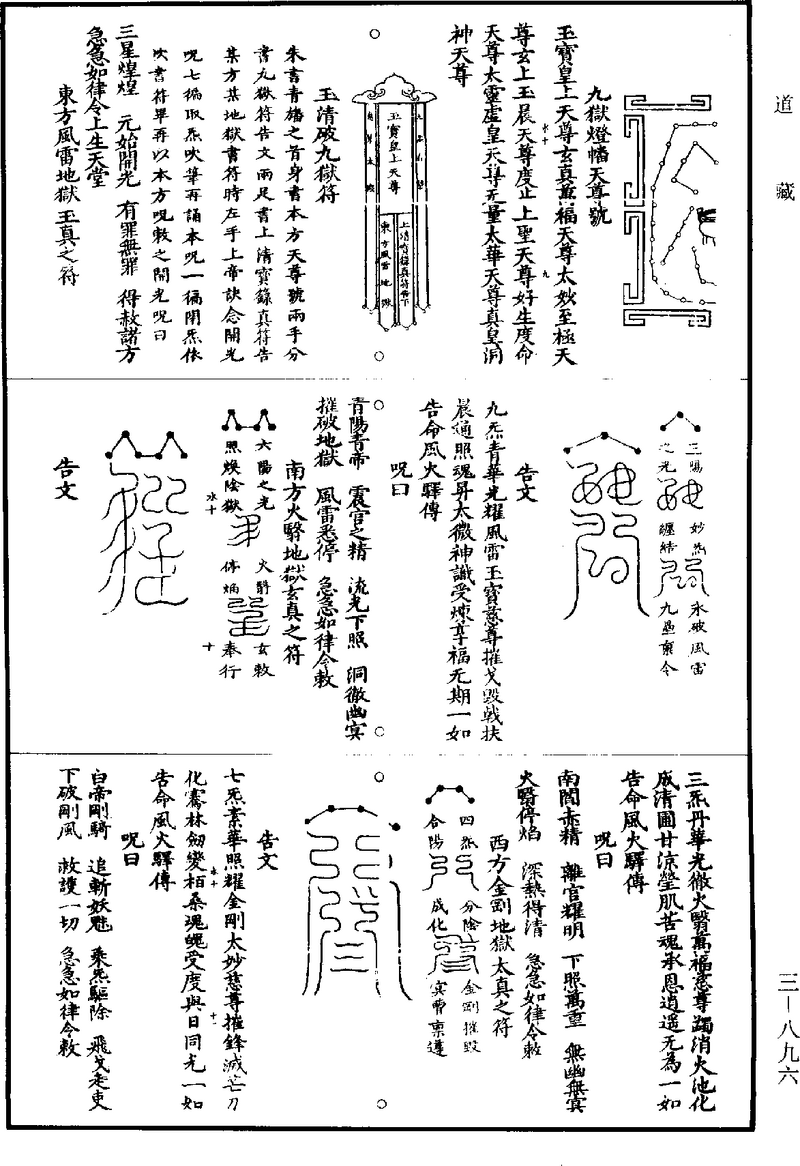 道藏
三—八九六
九獄燈幡天尊號
玉寶皇上天尊玄真萬福天尊太妙至極天
尊玄上玉晨天尊度止上聖天尊好生度命
天尊太靈虛皇天尊无量太華天尊真皇洞
神天尊
玉寶皇上天尊
東方風雷地獄
玉清破九獄符
朱書青旛之首身書本方天尊號兩手分
書九獄符告文兩足書上清寶籙真符告
某方某地獄書符時左手上帝訣念開光
呪七徧取炁吹筆再誦本呪一徧閉炁依
吹書符畢再以本方呪敕之開光呪曰
三星煌煌　元始開光　有罪無罪　得赦諸方
急急如律令上生天堂
東方風雷地獄玉真之符
三陽之光
妙炁纏結
永破風雷
九壘稟令
告文
九炁青華光耀風雷玉寶慈尊摧戈毀戟扶
晨通照魂昇太微神識受煉享福无期一如
告命風火驛傳
呪曰
青陽青帝　震宮之精　流光下照　洞徹幽冥
摧破地獄　風雷悉停　急急如律令敕
南方火翳地獄玄真之符
六陽之光
照煥陰獄
火翳停焰
玄敕奉行
告文
三炁丹華光徹火翳萬福慈尊蠲消火池化
成清圃甘涼瑩肌苦魂承恩逍遥无為一如
告命風火驛傳
呪曰
南閻赤精　離宮耀明　下照萬重　無幽無冥
火翳停焰　深熱得清　急急如律令敕
西方金剛地獄太真之符
四炁合陽
分陰成化
金剛摧毀
冥曹稟遵
告文
七炁素華照耀金剛太妙慈尊摧鋒滅芒刀
化騫林劒變栢桑瑰魄受度與日同光一如
告命風火驛傳
呪曰
白帝剛騎　追斬妖魅　乘炁驅除　飛文走吏
下破剛風　救護一切　急急如律令敕